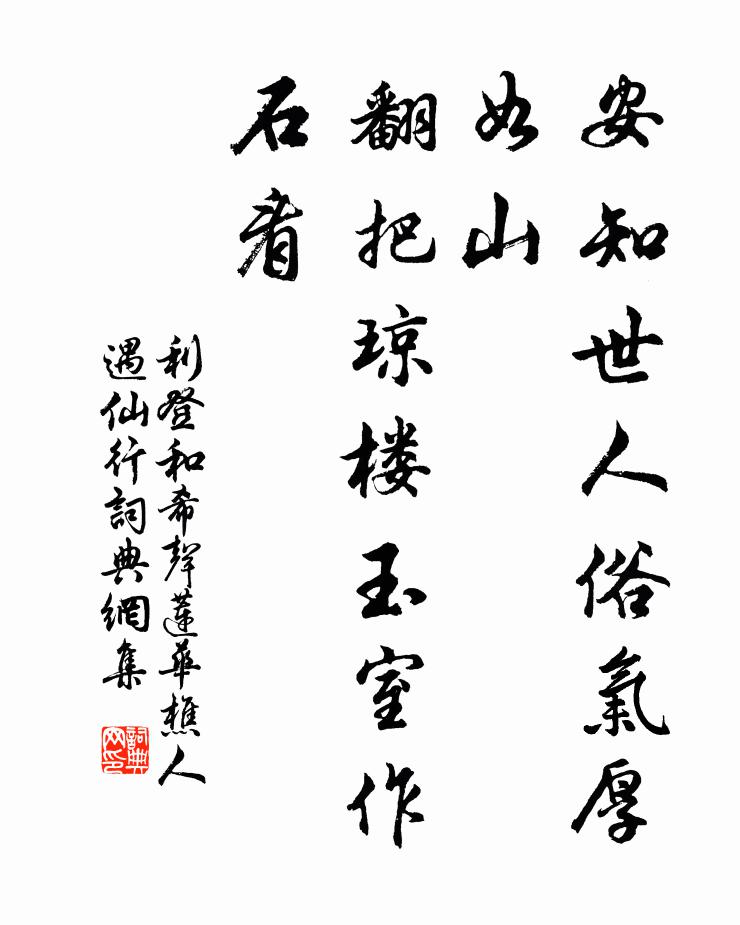 安知世人俗氣厚
如山
翻把琼楼玉室作
石看
利登和希聲蓮華樵人
遇仙行詞典網集
詞典
网印